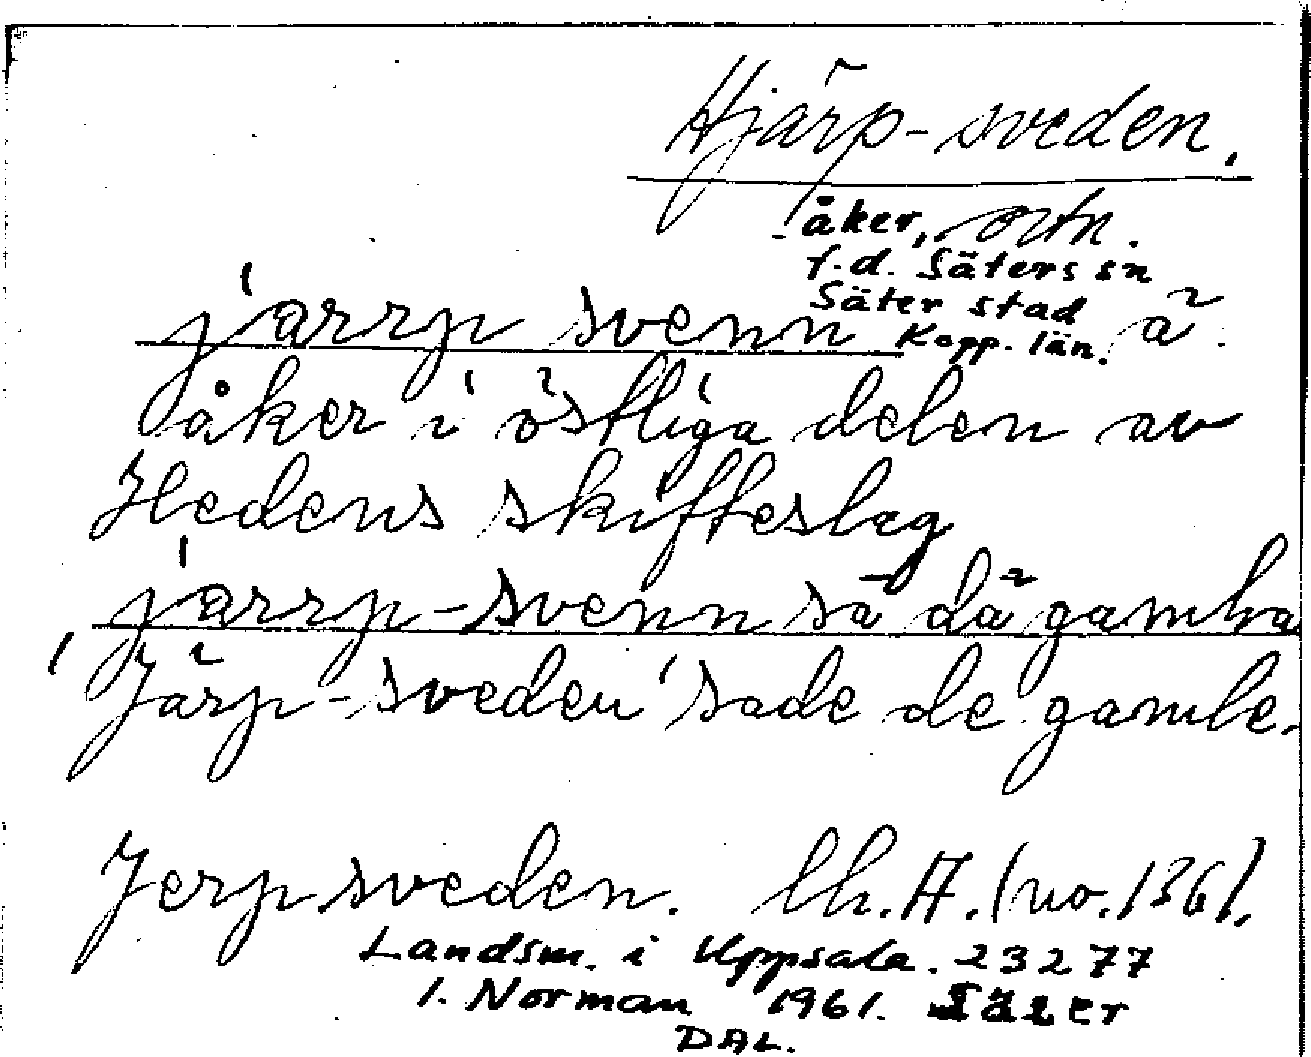 Hjärp-sveden.
åker, ortn.
f.d. Säters sn
Säter stad
Kopp. län.
järrp svenn ä
åker i östliga delen av
Hedens skifteslag
järrp-svenn sā dä gamba
'Järp-sveden' sade de gamle.
Jerpsveden. lh. A. (no. 136).
Landsm. i Uppsala. 23277
I. Norman 1961. Säter
DAL.